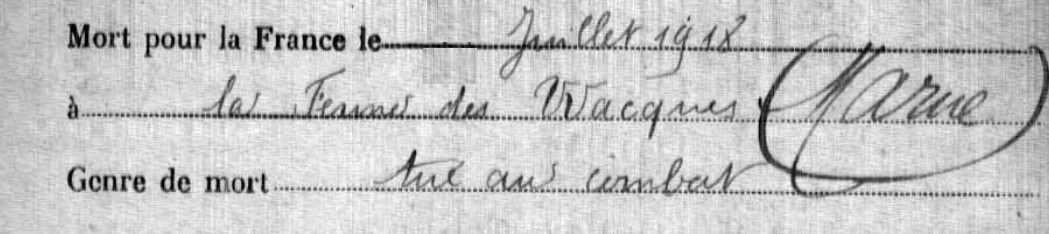 Mort pour la France le Juillet 1918
à la Ferme des Wacques (Marne)
Genre de mort tué au combat